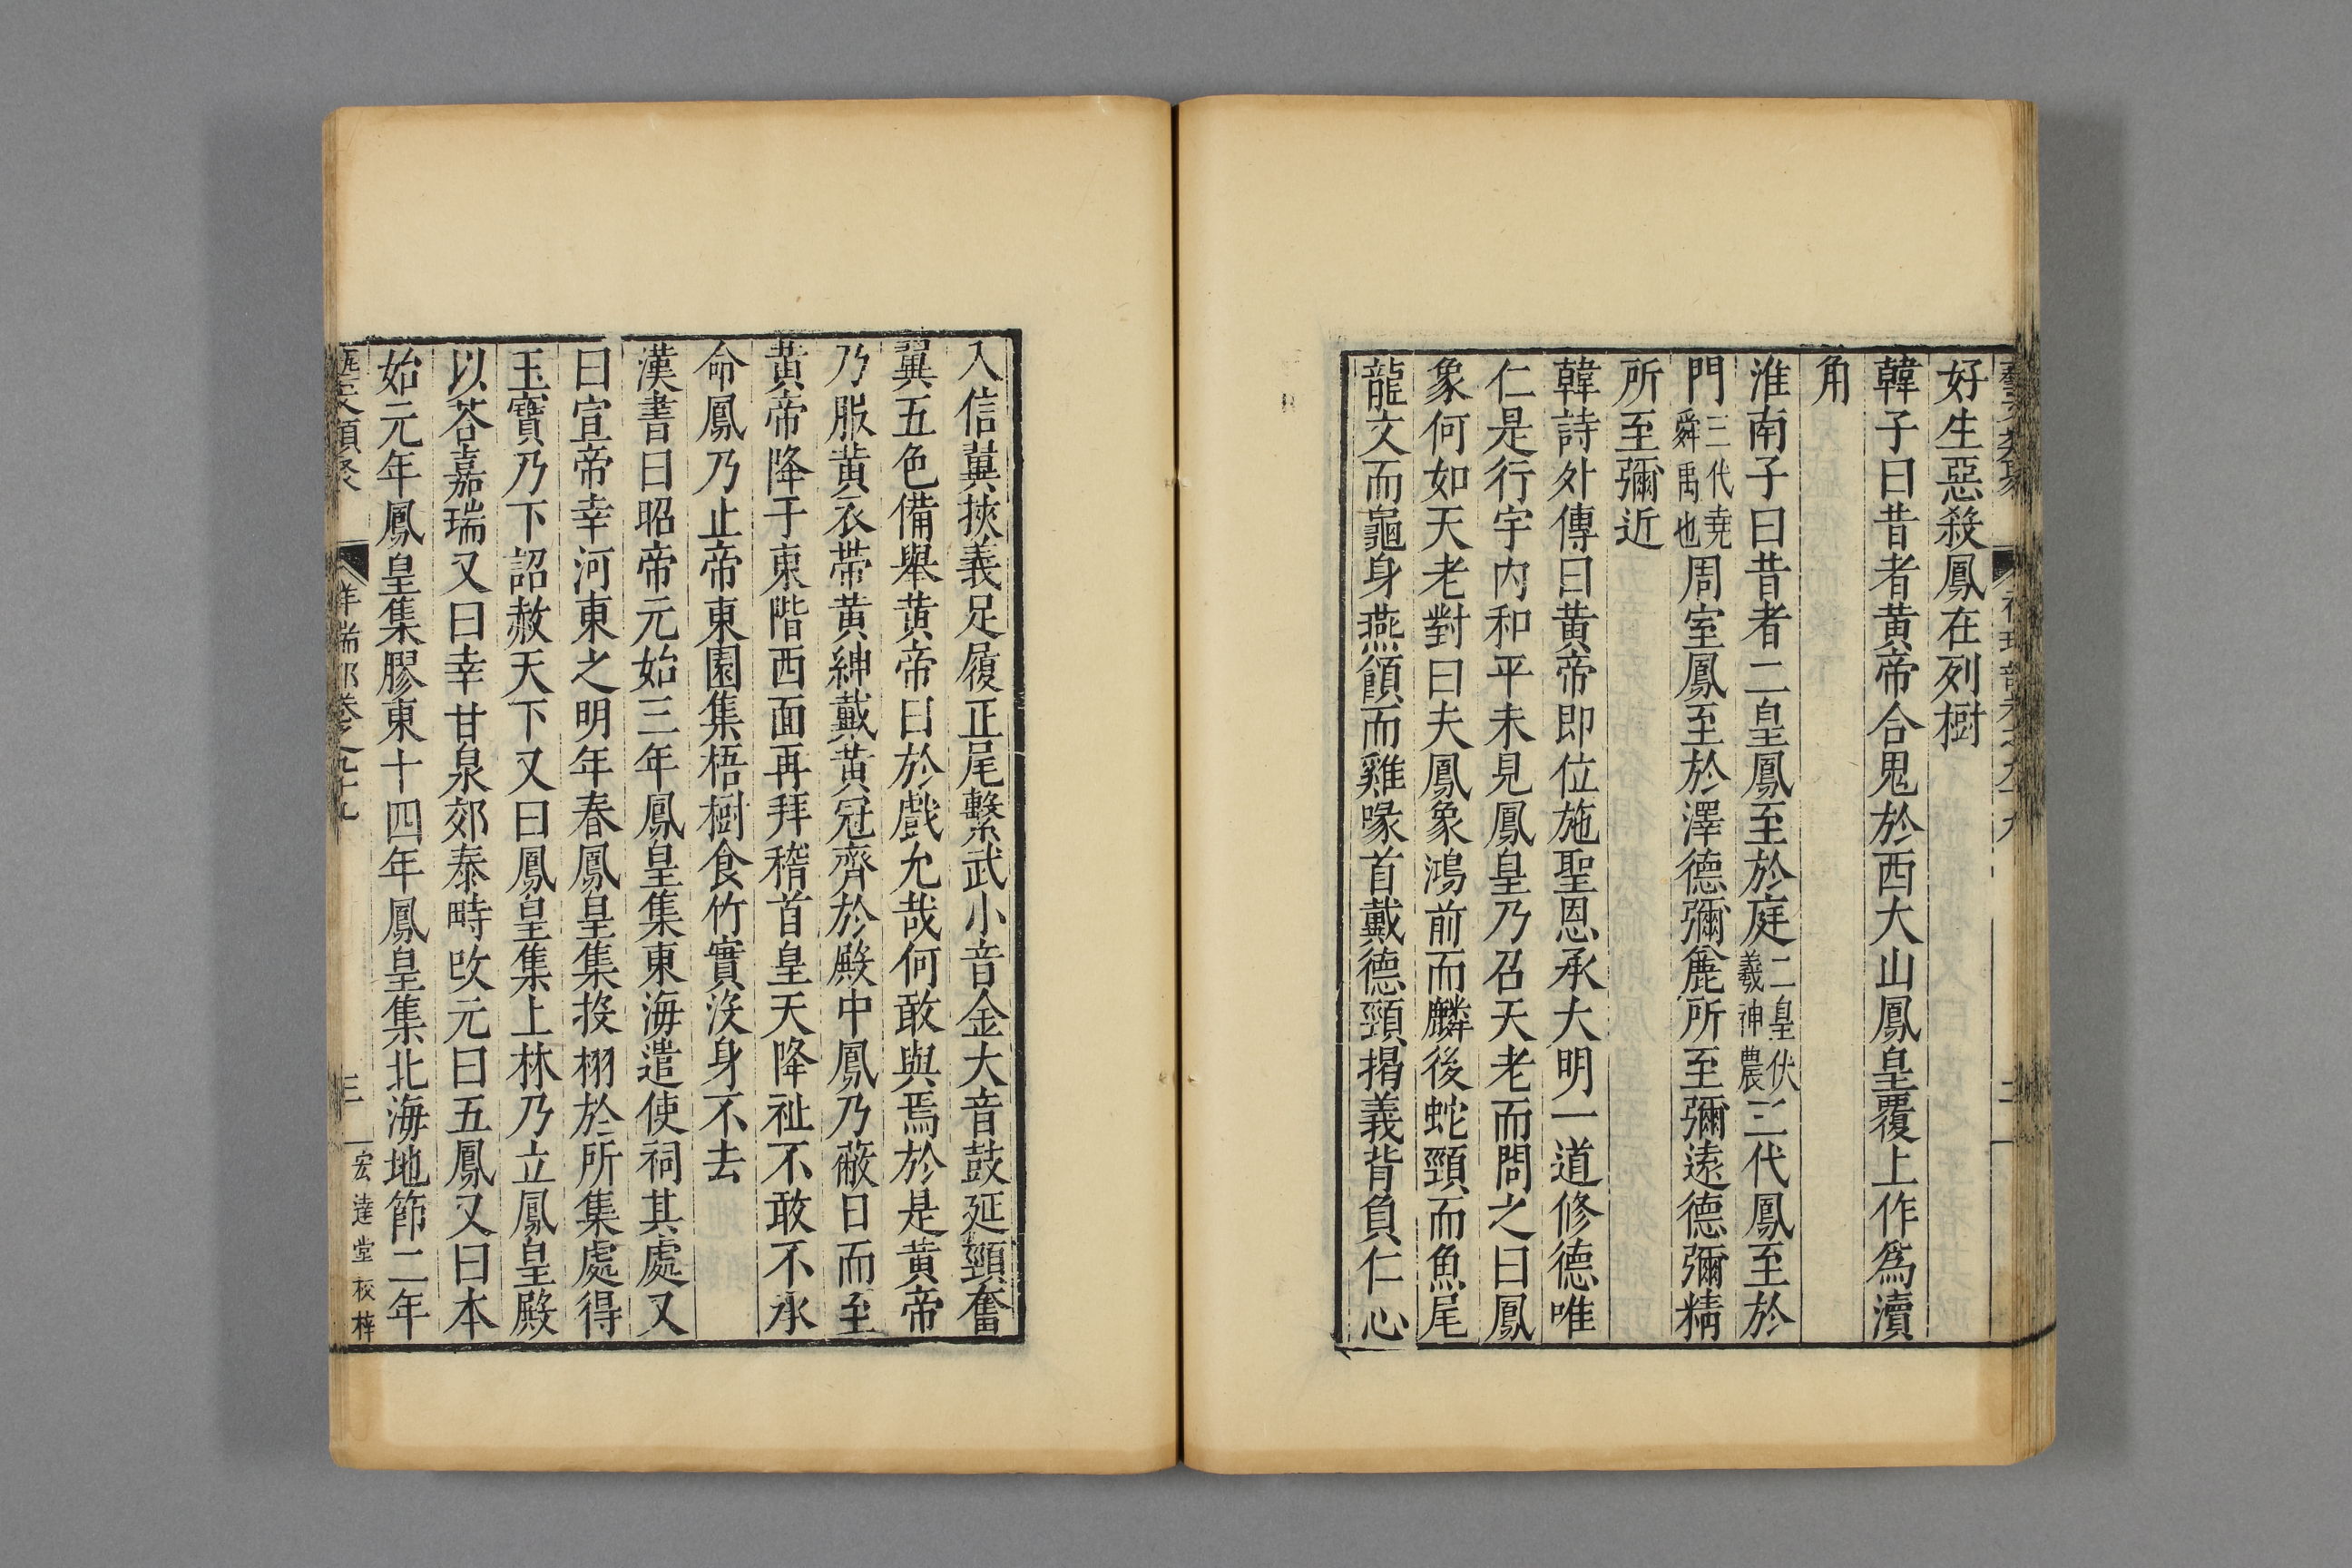 好生惡殺鳳在列樹
韓子曰昔者黃帝合鬼於西大山鳳皇覆上作爲瀆
角
淮南子曰昔者二皇鳳至於庭二皇伏羲神農三代鳳至於
門三代堯舜禹也周室鳳至於澤德彌麄所至彌遠德彌精
所至彌近
韓詩外傳曰黃帝即位施聖恩承大明一道修德唯
仁是行宇内和平未見鳳皇乃召天老而問之曰鳳
象何如天老對曰夫鳳象鴻前而麟後蛇頸而魚尾
龍文而龜身燕頷而雞喙首戴德頸揭義背負仁心
入信翼挾義足履正尾繫武小音金大音鼓延頸奮
翼五色備舉黃帝曰於戲允哉何敢與焉於是黃帝
乃服黃衣帶黃紳戴黃冠齊於殿中鳳乃蔽日而至
黃帝降于東階西面再拜稽首皇天降祉不敢不承
命鳳乃止帝東園集梧樹食竹實沒身不去
漢書曰昭帝元始三年鳳皇集東海遣使祠其處又
曰宣帝幸河東之明年春鳳皇集祋栩於所集處得
玉寶乃下詔赦天下又曰鳳皇集上林乃立鳳皇殿
以荅嘉瑞又曰幸甘泉郊泰畤改元曰五鳳又曰本
始元年鳳皇集膠東十四年鳳皇集北海地節二年
祥瑞部卷之九十九
三
宏達堂校梓